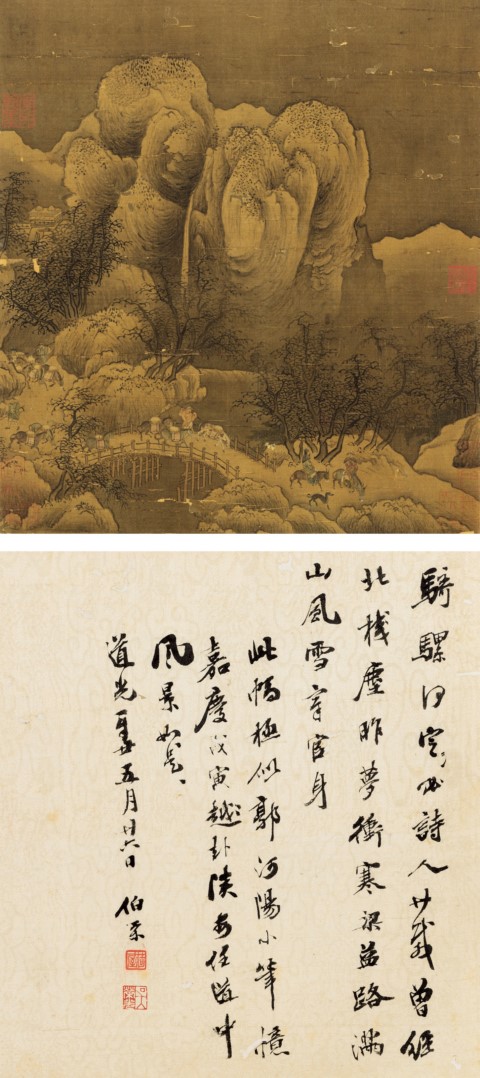 騎騾何定必詩人廿載曾經
北棧塵昨夢衝寒梁益路滿
山風雪宰官身
此幀極似郭河陽小筆憶
嘉慶戊寅赴陝安任道中
風景如是
道光五月廿六日 伯榮